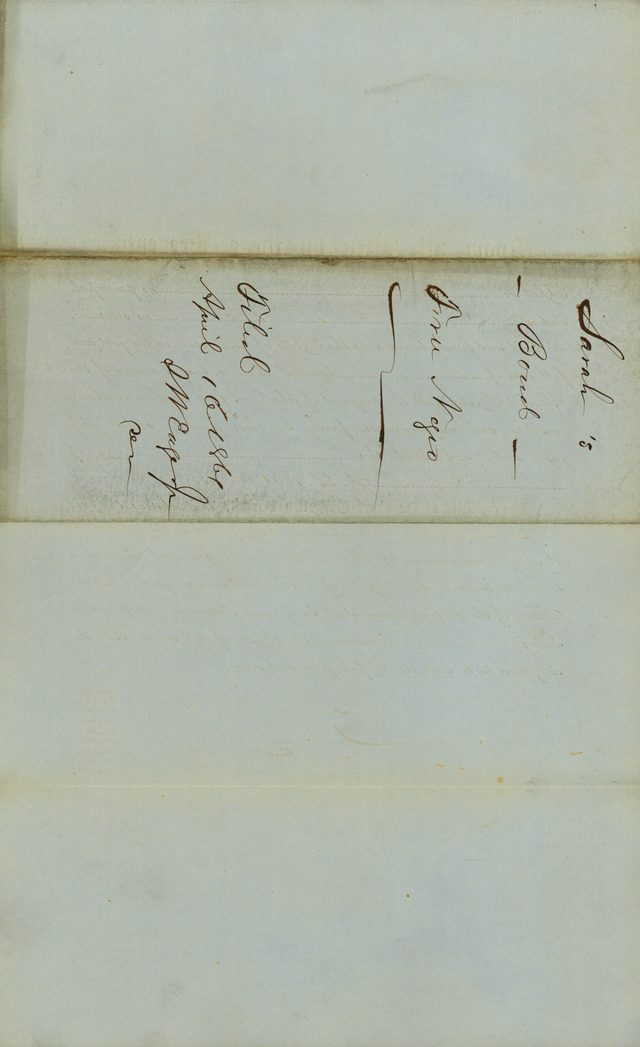 Sarah's
- Bond -
Free Negro
Filed
April 16 1861